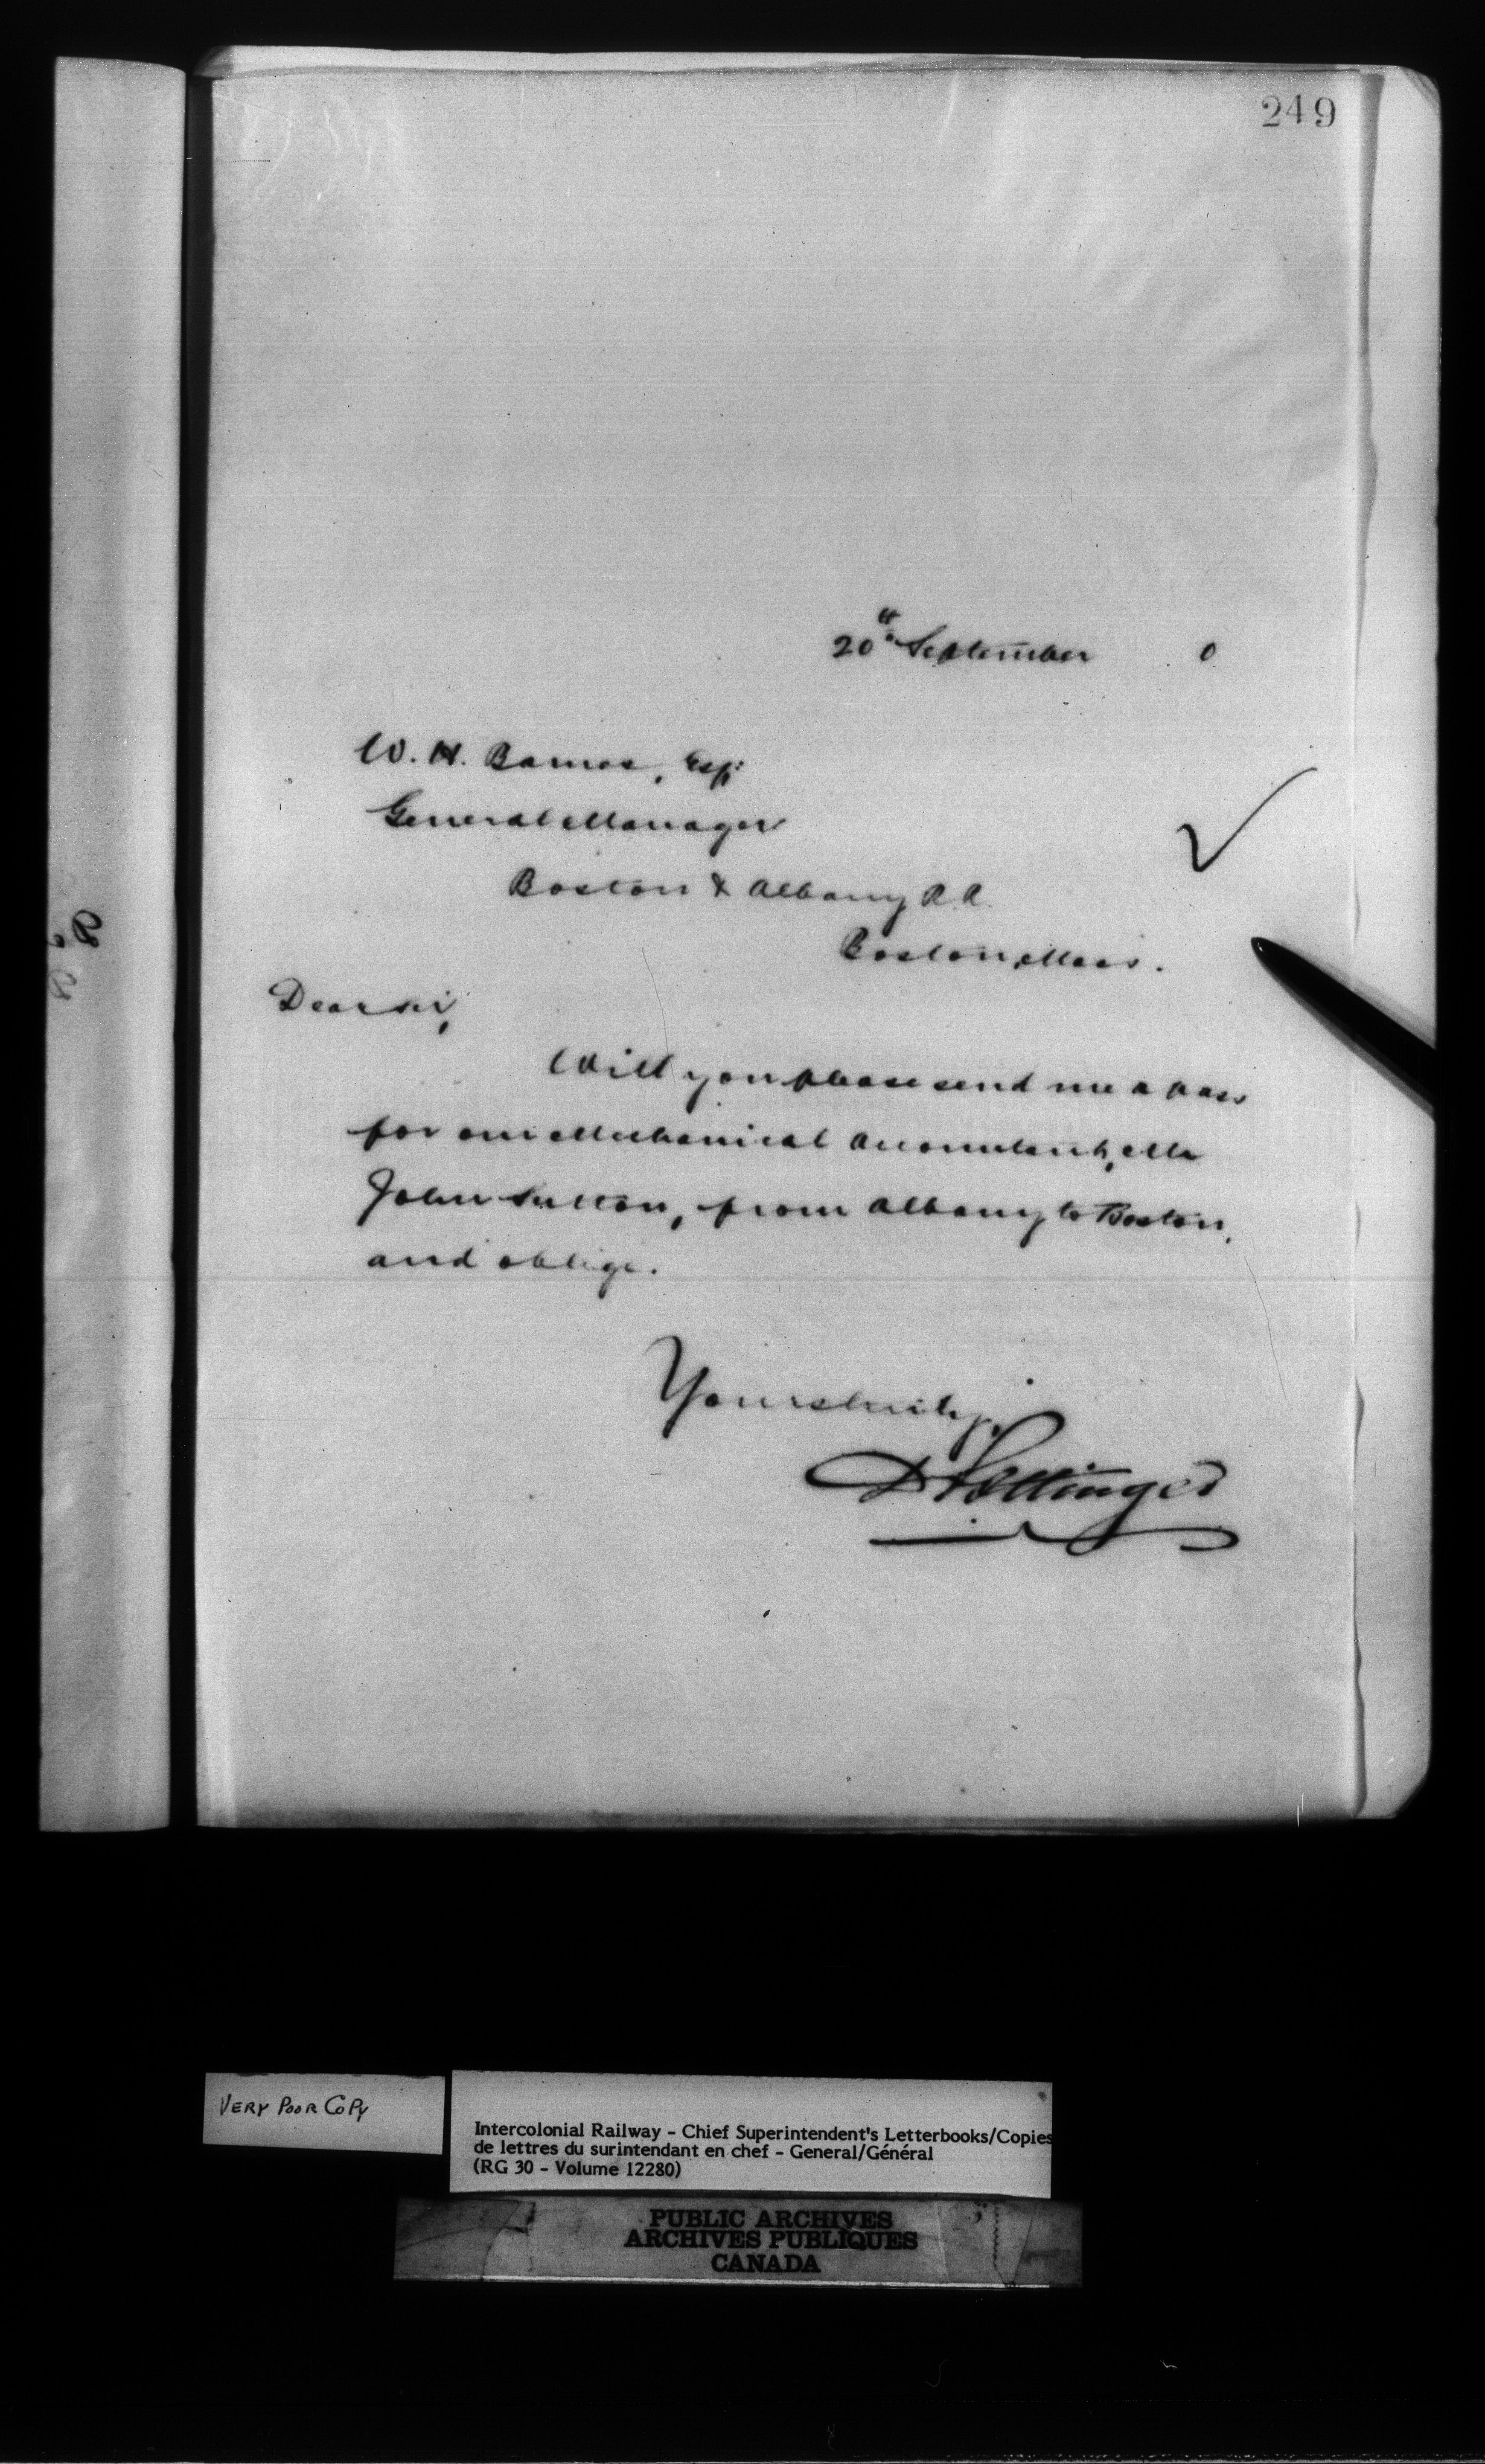 249
20th September 0
W. H. Barnes, Esq:
General Manager
Boston & Albany R.R.
Boston, Mass.
Dear sir,
Will you please send me a pass
for our Mechanical Accountant, Mr
John Sutton, from Albany to Boston,
and oblige.
Yours truly,
D Pottinger
VERY POOR COPY
Intercolonial Railway - Chief Superintendent's Letterbooks/Copies
de lettres du surintendant en chef - General/Général
(RG 30 - Volume 12280)
PUBLIC ARCHIVES
ARCHIVES PUBLIQUES
CANADA